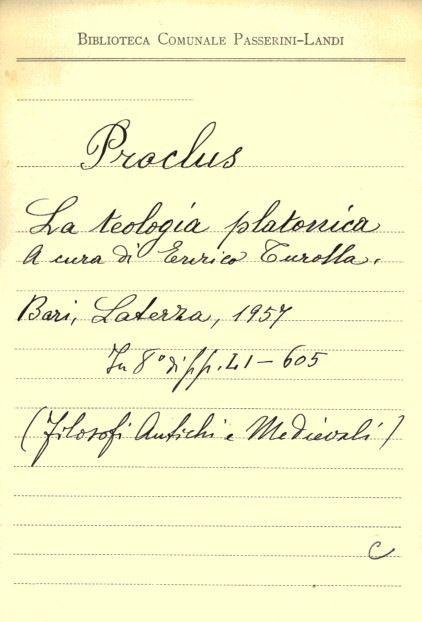 BIBLIOTECA COMUNALE PASSERINI-LANDI
Proclus
La teologia platonica
A cura di Enrico Turolla.
Bari, Laterza, 1957
In 8° di pp. LI — 605
(Filosofi Antichi e Medievali)
C